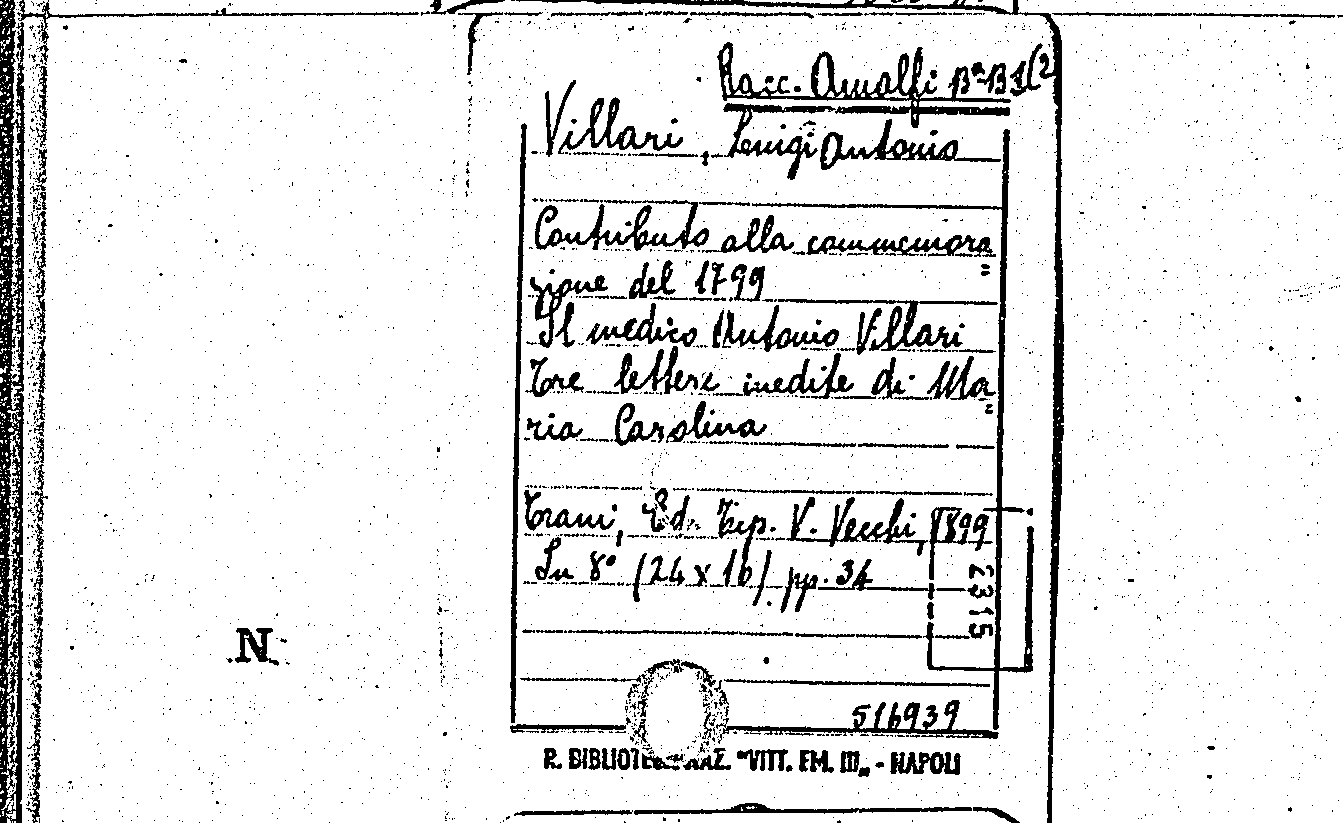 Racc. Amalfi Bª B 1(2
Villari, Luigi Antonio
Contributo alla commemora=
zione del 1799
Il medico Antonio Villari
Tre lettere inedite di Ma=
ria Carolina
Trani, Ed. Tip. V. Vecchi, 1899
In 8° (24 x 16) pp. 34
2315
N
516939
R. BIBLIOTECA NAZ. "VITT. EM. III„ - NAPOLI